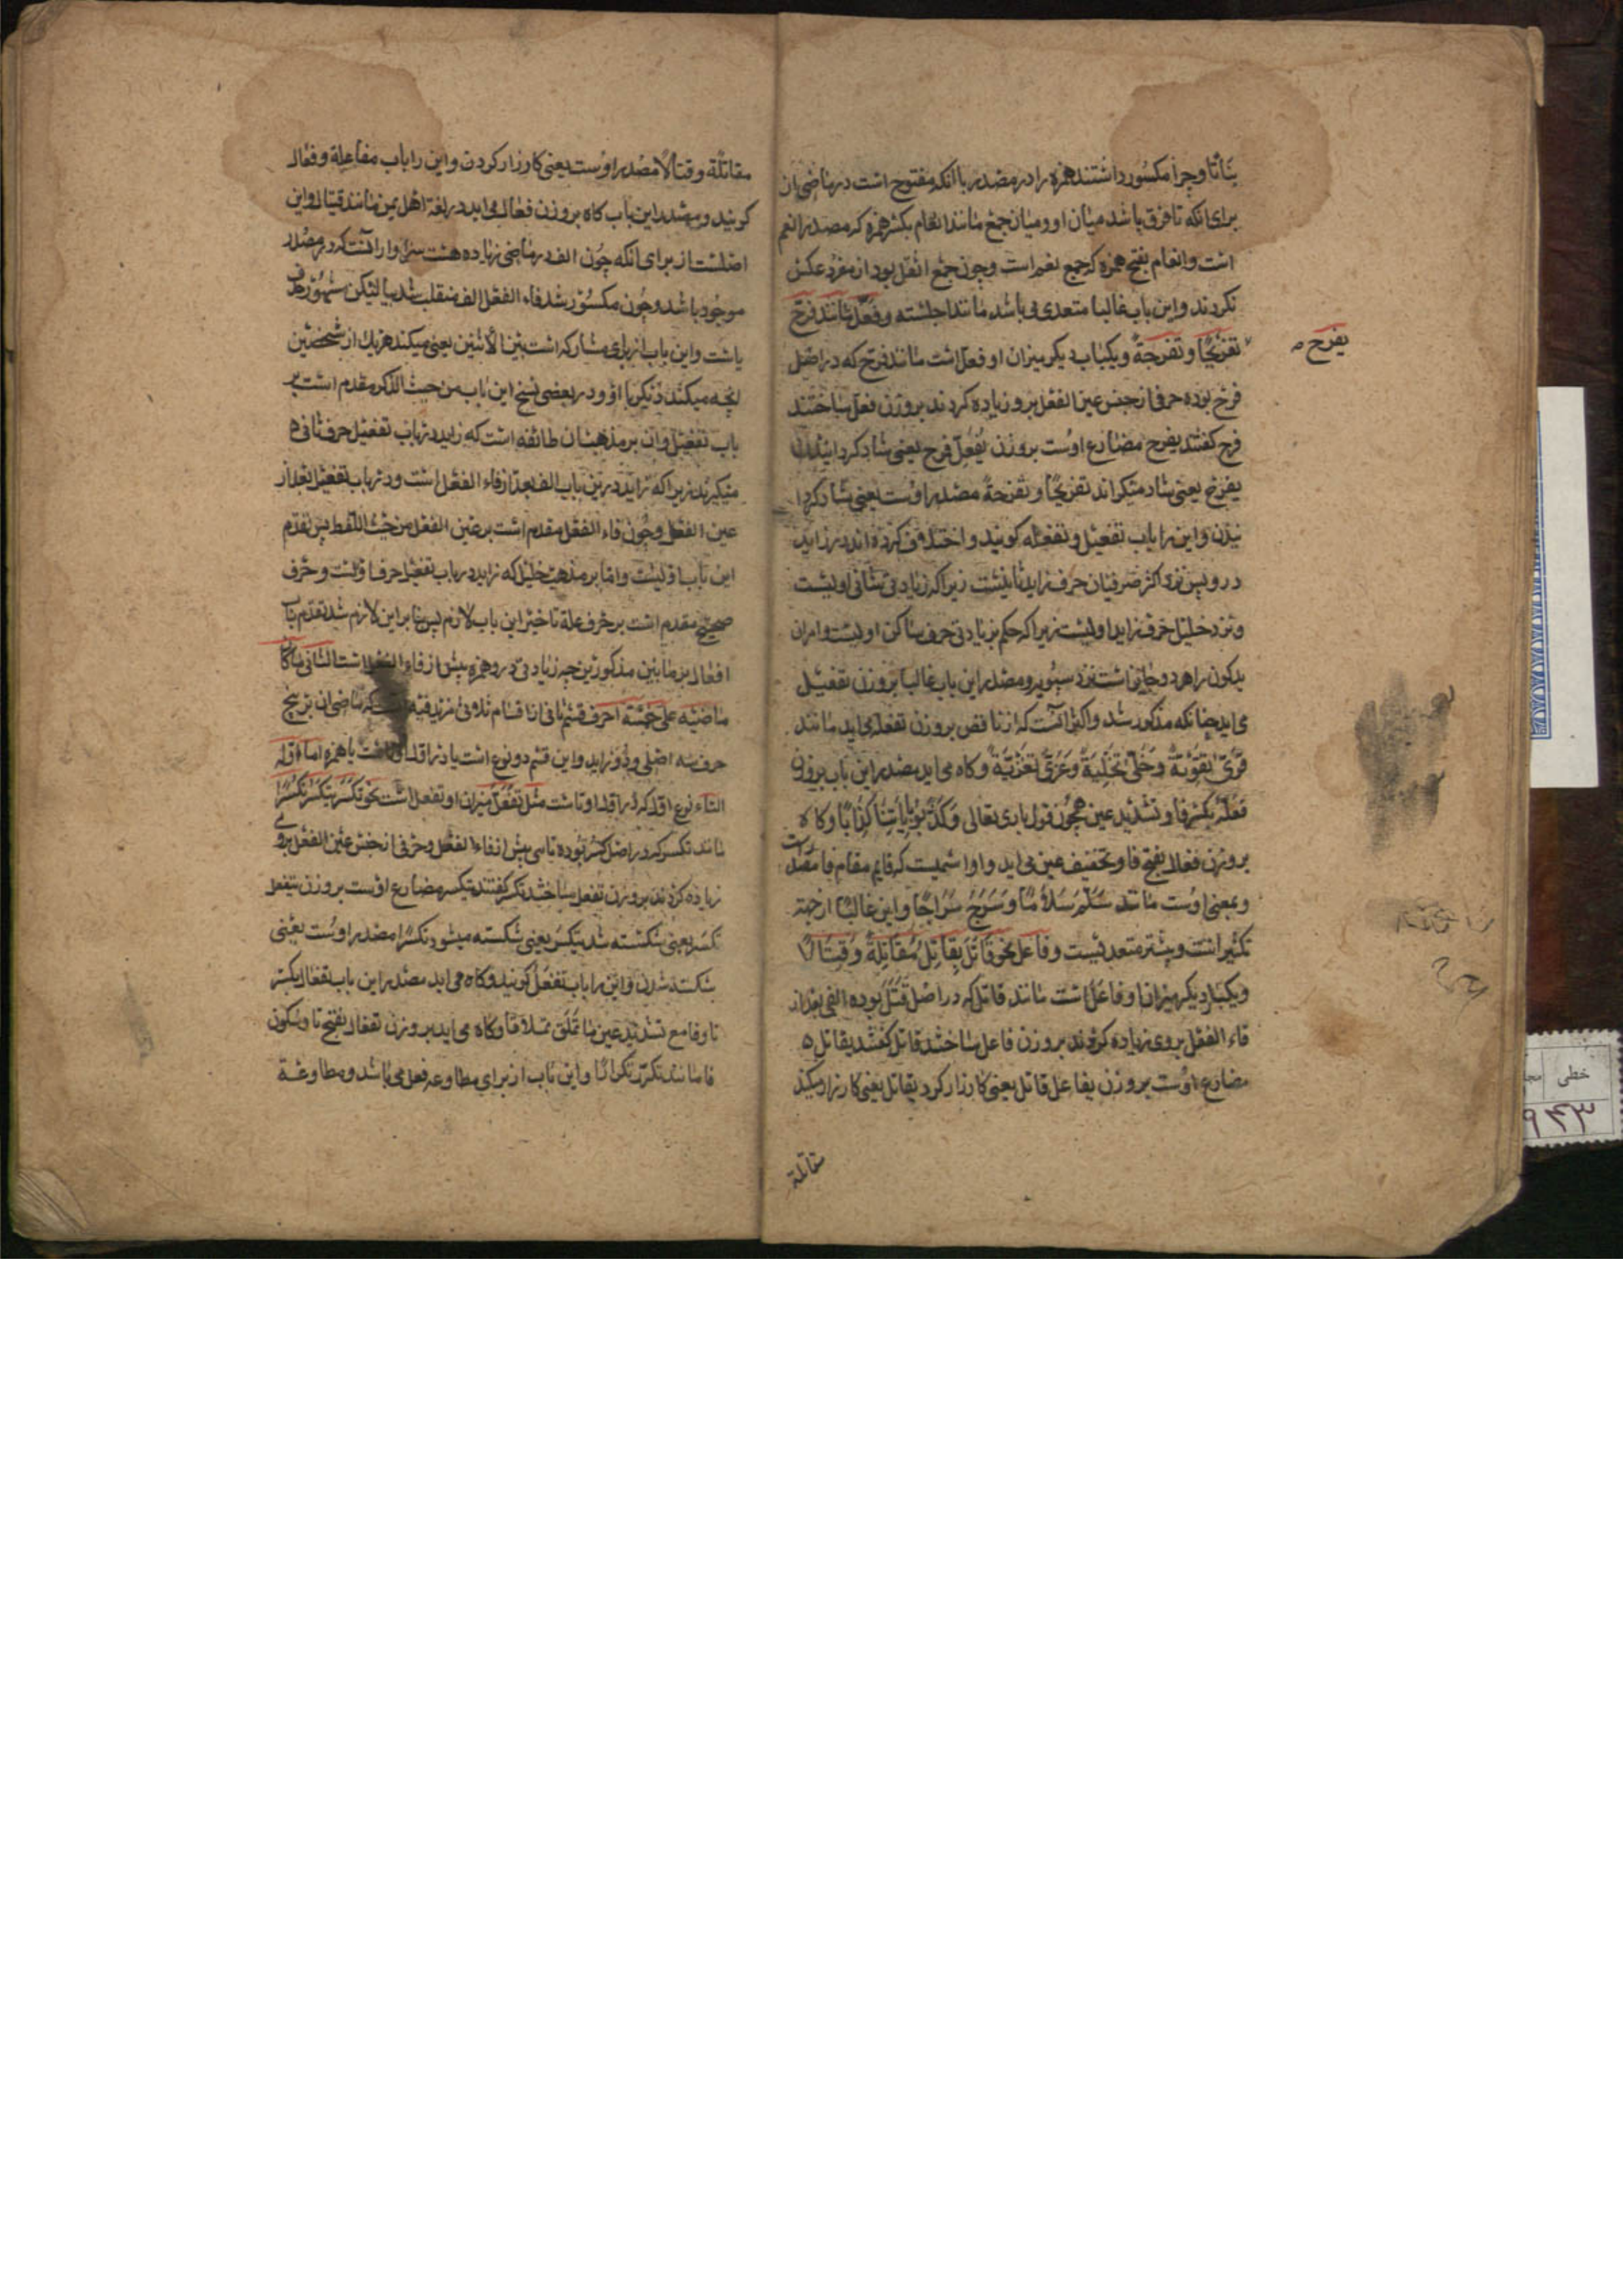 بناتا و چرا مکسور داشتند همزه را در مصدر با آنکه مفتوح است در ماضی ان
برای انکه تا فرق باشد میان او و میان جمع مانند انعام بکسر همزه که مصدر انعم
است و انعام بفتح همزه که جمع نعم است و چون جمع اثقل بود از مفرد عکس
نکردند و این باب غالبا متعدی می باشد مانند اجلسته و فعّل مانند فرّح
یفرح
تفریحًا و تفرحةً و یکباب دیکر میزان او فعل است مانند فرح که در اصل
فرح بوده حرفی از جنس عین الفعل برو زیاده کردند بر وزن فعل ساختند
فرح کفتند یفرح مضارع اوست بر وزن یُفَعِّل فرح یعنی شاد کردانید
یفرح یعنی شاد میکراند تفریحًا و تفرحةً مصدر اوست یعنی شاد کردا
نیدن و این را باب تفعیل و تفعله کویند و اختلاف کرده اند در زاید
درو پس نزد اکثر صرفیان حرف زاید ثانیست زیرا که زیادتی بثانی اولیست
و نزد خلیل حرف زاید اولیست زیرا که حکم بزیادتی حرف ساکن اولیست و امران
یدکون را هر دو جایز است نزد سیبویه و مصدر این باب غالبا بر وزن تفعیل
می اید چنانکه مذکور شد و اکثر آنست که از ناقص بر وزن تفعله می اید مانند
قوّی تقویة و خلّی تخلیةً و عزّی تعزیةً و کاه می اید مصدر این باب بر وزن
فعّال بکسر فا و تشدید عین همچون قول باری تعالی وَکَذَّبُوا بِآیَاتِنَا کِذَّابًا و کاه
بر وزن فعال بفتح فا و تخفیف عین می اید و او اسمیست که قایم مقام مصدر است
و بمعنی اوست مانند سَلَّمَ سَلَامًا و سَرَّحَ سَرَاحًا و این غالبًا از جهة
تکثیر است و بیشتر متعدیست و فاعل نحو قَاتَلَ یُقَاتِلُ مُقَاتَلَةً وَ قِتَالًا
و یکباب دیکر میزان او فاعَلَ است مانند قاتل که در اصل قَتَلَ بوده الفی بعد از
فاء الفعل بروی زیاده کردند بر وزن فاعل ساختند قاتل کفتند یقاتل
مضارع اوست بر وزن یفاعل قاتل یعنی کارزار کرد یقاتل یعنی کارزار میکند
مقاتلة
مقاتلةً و قتالًا مصدر اوست یعنی کارزار کردن و این را باب مفاعلة و فعال
کویند و مصدر این باب کاه بر وزن فیعال می اید در لغة اهل یمن مانند قیتال و این
اصلست از برای انکه چون الف در ماضی زیاده هست سزاوار آنست که در مصدر
موجود باشد و چون مکسور شد فاء الفعل الف منقلب شد بیا لیکن مشهور حذف
یاست و این باب از برای مشارکه است بین الاثنین یعنی میکند هر یک از شخصین
انچه میکند دیکر با او و در بعضی نسخ این باب من حیث الذکر مقدم است بر
باب تفعیل و ان بر مذهب ان طائفه است که زاید در باب تفعیل حرف ثانی
میکیرند زیرا که زاید درین باب الف بعد از فاء الفعل است و در باب تفعیل بعد از
عین الفعل و چون فاء الفعل مقدم است بر عین الفعل من حیث اللفظ پس تقدم
این باب اولیست و اما بر مذهب خلیل که زاید در باب تفعیل حرف اولست و حرف
صحیح مقدم است بر حرف علة تاخیر این باب لازم پس بنا بر این لازم شد تقدم باب
افعال بر مابین مذکورین چه زیادتی درو همزه پیش از فاء الفعل است الثانی ما کان
ماضیه علی خمسة احرف قسم ثانی از اقسام ثلاثی مزید فیه که ماضی ان بر پنج
حرف سه اصلی و دو زاید و این قسم دو نوع است یا در اول او تاست یا همزه اما اوله
التاء نوع اول که در اول او تاست مثل تَفَعَّلَ میزان او تفعل است نحو تَکَسَّرَ یَتَکَسَّرُ تَکَسُّرًا
مانند تکسر که در اصل کسر بوده تایی پیش از فاء الفعل و حرفی از جنس عین الفعل بروی
زیاده کردند بر وزن تفعل ساختند تکسر کفتند یتکسر مضارع اوست بر وزن یتفعل
تکسر یعنی شکسته شد یتکسر یعنی شکسته میشود تکسرًا مصدر اوست یعنی
شکسته شدن و این را باب تفعّل کویند و کاه می اید مصدر این باب تفعال بکسر
تا و فا مع تشدید عین مانند تملّق تملّاقًا و کاه می اید بر وزن تفعال بفتح تا و سکون
فا مانند تکرّر تکرارًا و این باب از برای مطاوعه فعل می باشد و مطاوعة
خطی
۹۴۳